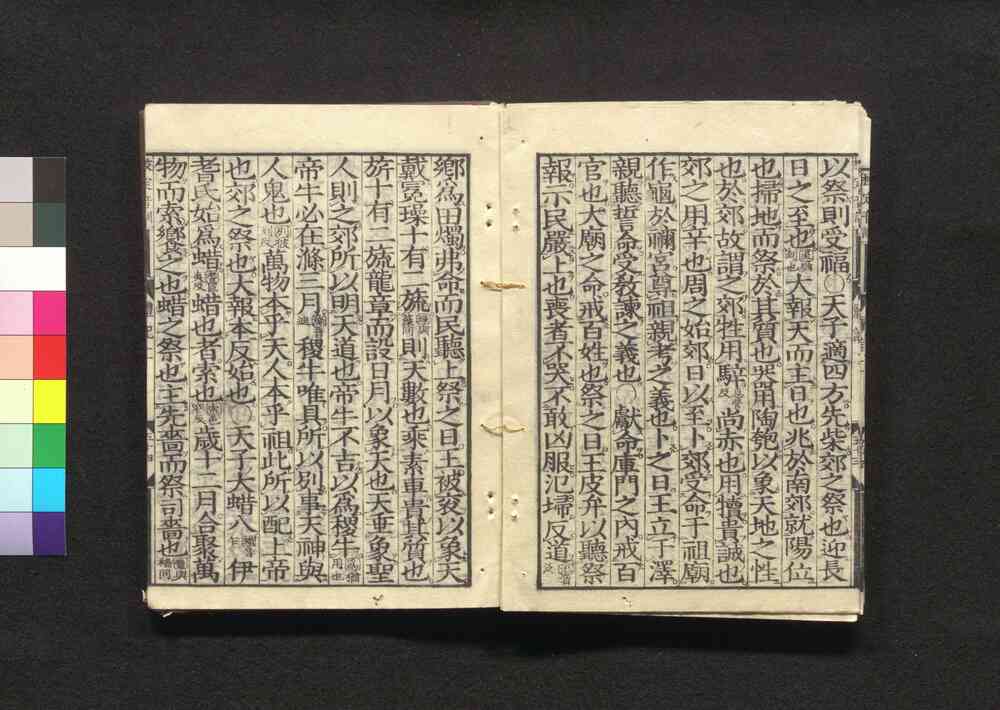 以祭則受福○天子適四方先柴郊之祭也迎長
日之至也大報天而主日也兆於南郊就陽位
也掃地而祭於其質也器用陶匏以象天地之性
也於郊故謂之郊牲用騂尚赤也用犢貴誠也
郊之用辛也周之始郊日以至卜郊受命于祖廟
作龜於禰宮尊祖親考之義也卜之日王立于澤
親聽誓命受教諫之義也○獻命庫門之內戒百
官也大廟之命戒百姓也祭之日王皮弁以聽祭
報示民嚴上也喪者不哭不敢凶服氾埽反道
鄉為田燭弗命而民聽上祭之日王被袞以象天
戴冕璪十有二旒則天數也乘素車貴其質也
旂十有二旒龍章而設日月以象天也天垂象聖
人則之郊所以明天道也帝牛不吉以為稷牛為猶用也
帝牛必在滌三月稷牛唯具所以別事天神與
人鬼也萬物本乎天人本乎祖此所以配上帝
也郊之祭也大報本反始也○天子大蜡八伊
耆氏始為蜡蜡也者索也歲十二月合聚萬
物而索饗之也蜡之祭也主先嗇而祭司嗇也